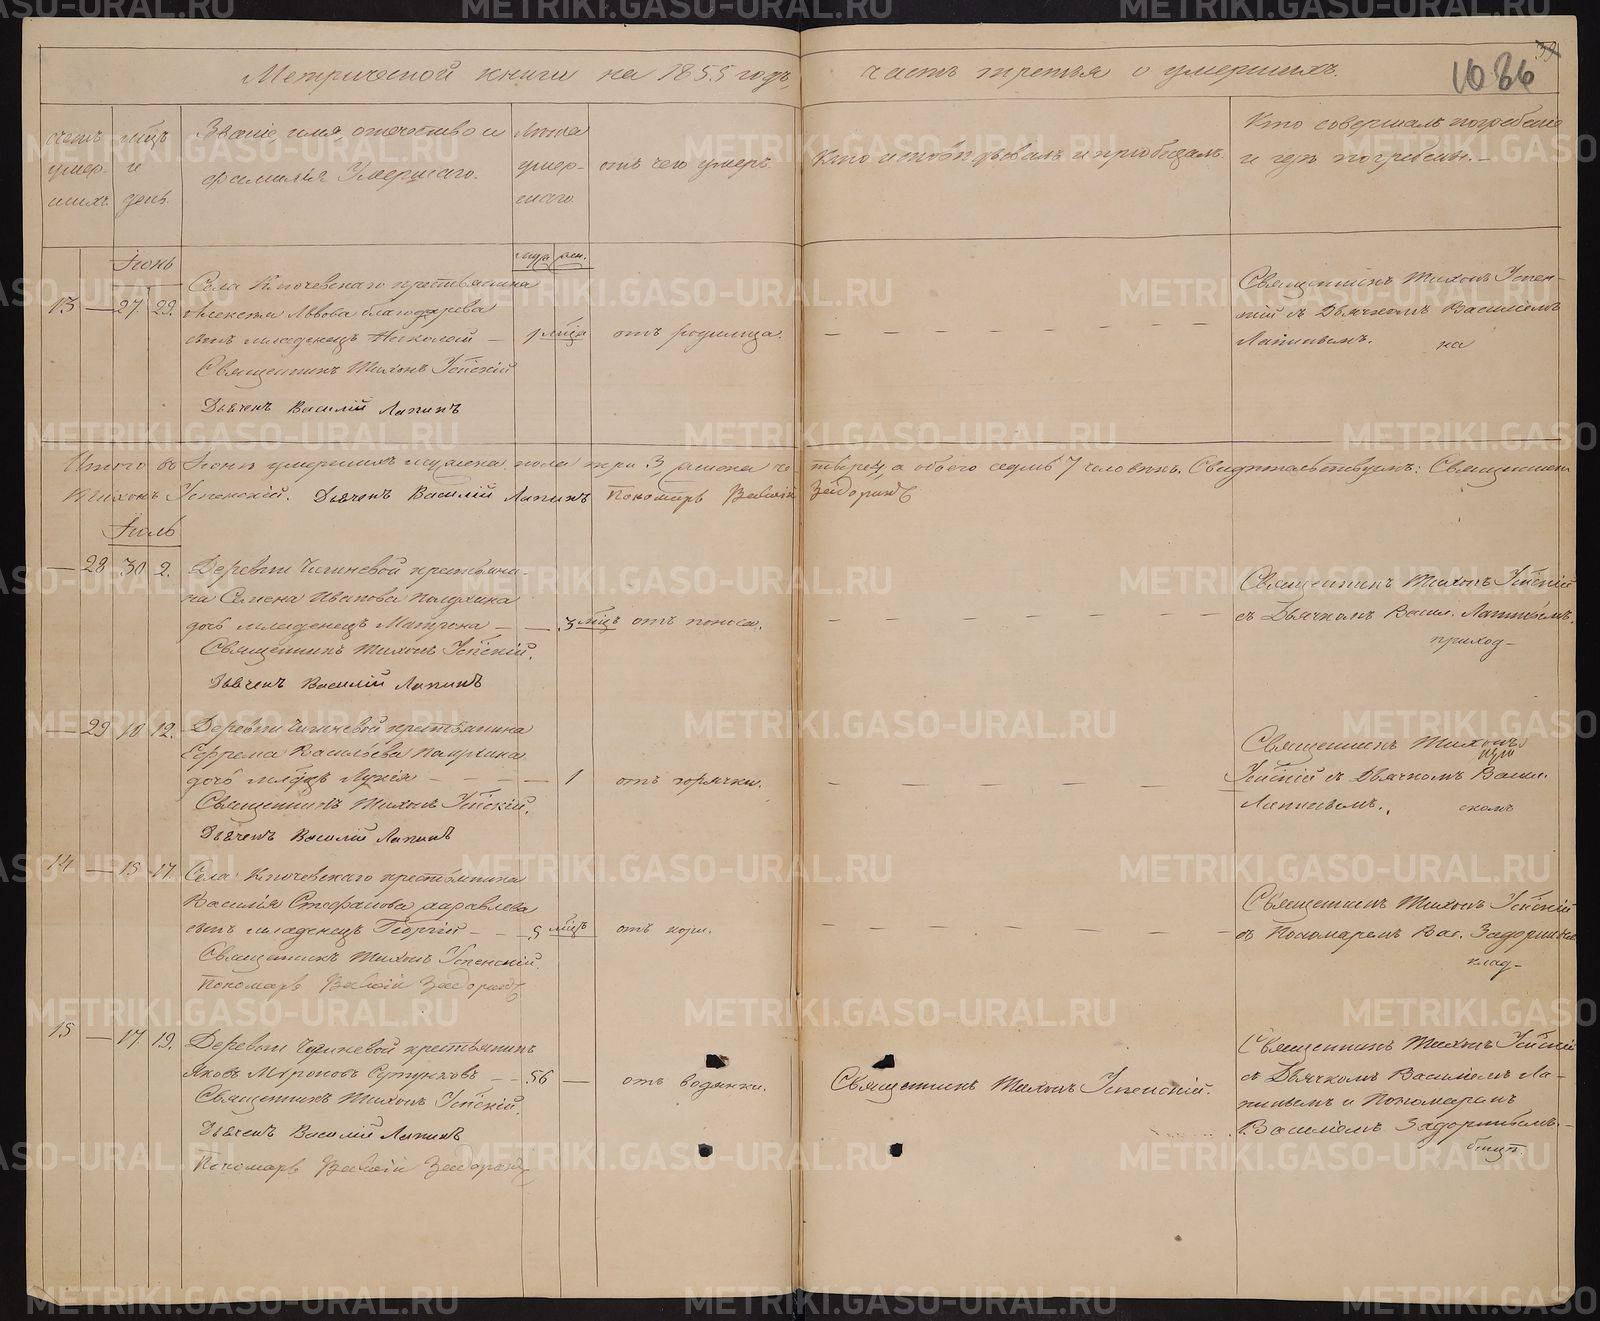 Метрической книги на 1855 годъ, часть третья о умершихъ.
39
1036
счетъ умер-шихъ
мѣцъ и день.
Званіе, имя, отечество и
фамилія Умершаго.
Лѣта
умер-
шаго.
отъ чего умеръ
Кто исповѣдывалъ и приобщалъ.
Кто совершалъ погребеніе
и гдѣ погребены.
Іюнь
муж. жен.
13 — 27 29.
Села Ключевскаго крестьянина
Алексѣя Львова
сынъ младенецъ Николай —
1 мѣца
отъ родимца.
Священникъ Тихонъ Успен-
скій съ Дьячкомъ Василіемъ
Лапинымъ. на
Священникъ Тихонъ Успскій
Дьячекъ Василій Лапинъ
Итого въ Іюнѣ умершихъ мужеска пола три 3, женска четыре 4, а обоего седмь 7 человѣкъ. Свидѣтельствуютъ: Священникъ
Тихонъ Успенскій. Дьячекъ Василій Лапинъ Пономарь Василій Задоринъ
Іюль
— 28 30 2.
Деревни крестьяни-
на Семена Иванова
дочь младенецъ Матрона —
3 мѣцъ
отъ поноса.
Священникъ Тихонъ Успскій
съ Дьячкомъ Васил. Лапинымъ.
приход-
Священникъ Тихонъ Успскій.
Дьячекъ Василій Лапинъ
— 29 10 12.
Деревни крестьянина
Ефрема Васильева
дочь млднцъ Лукія —
1
отъ горячки.
Священникъ Тихонъ
Успскій съ Дьячкомъ Васил.
Лапинымъ. скомъ
Священникъ Тихонъ Успскій.
Дьячекъ Василій Лапинъ
14 — 15 17.
Села Ключевскаго крестьянина
Василія Стефанова
сынъ младенецъ Георгій —
9 мѣцъ
отъ кори.
Священникъ Тихонъ Успскій
съ Пономаремъ Вас. Задоринымъ
клад-
Священникъ Тихонъ Успенскій.
Пономарь Василій Задоринъ
15 — 17 19.
Деревни крестьянинъ
Яковъ Мироновъ
56 —
отъ водянки.
Священникъ Тихонъ Успенскій.
Священникъ Тихонъ Успскій
съ Дьячкомъ Василіемъ Ла-
пинымъ и Пономаремъ
Василіемъ Задоринымъ.
бищѣ.
Священникъ Тихонъ Успскій.
Дьячекъ Василій Лапинъ
Пономарь Василій Задоринъ
METRIKI.GASO-URAL.RU